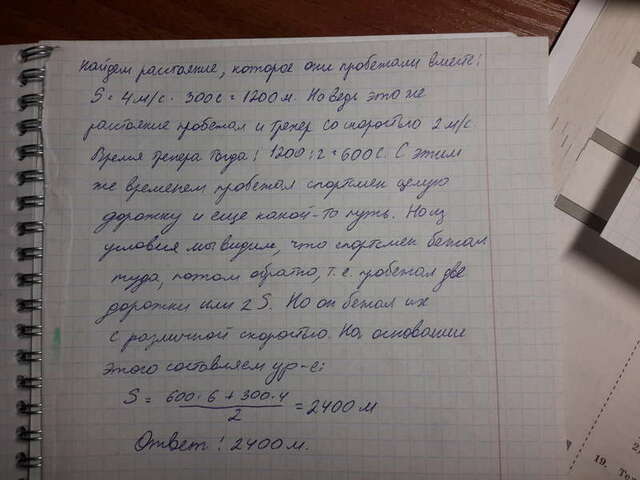 Найдем расстояние, которое они пробежали вместе:
S = 4 м/с · 300с = 1200 м. Но ведь это же
расстояние пробежал и тренер со скоростью 2 м/с.
Время тренера тогда: 1200 : 2 = 600 с. С этим
же временем пробежал спортсмен целую
дорожку и еще какой-то путь. Но из
условия мы видим, что спортсмен бежал
туда, потом обратно, т.е. пробежал две
дорожки или 2 S. Но он бежал их
с различной скоростью. На основание
этого составляем ур-е:
S = 600·6 + 300·4 / 2 = 2400 м
Ответ: 2400 м.
19. То